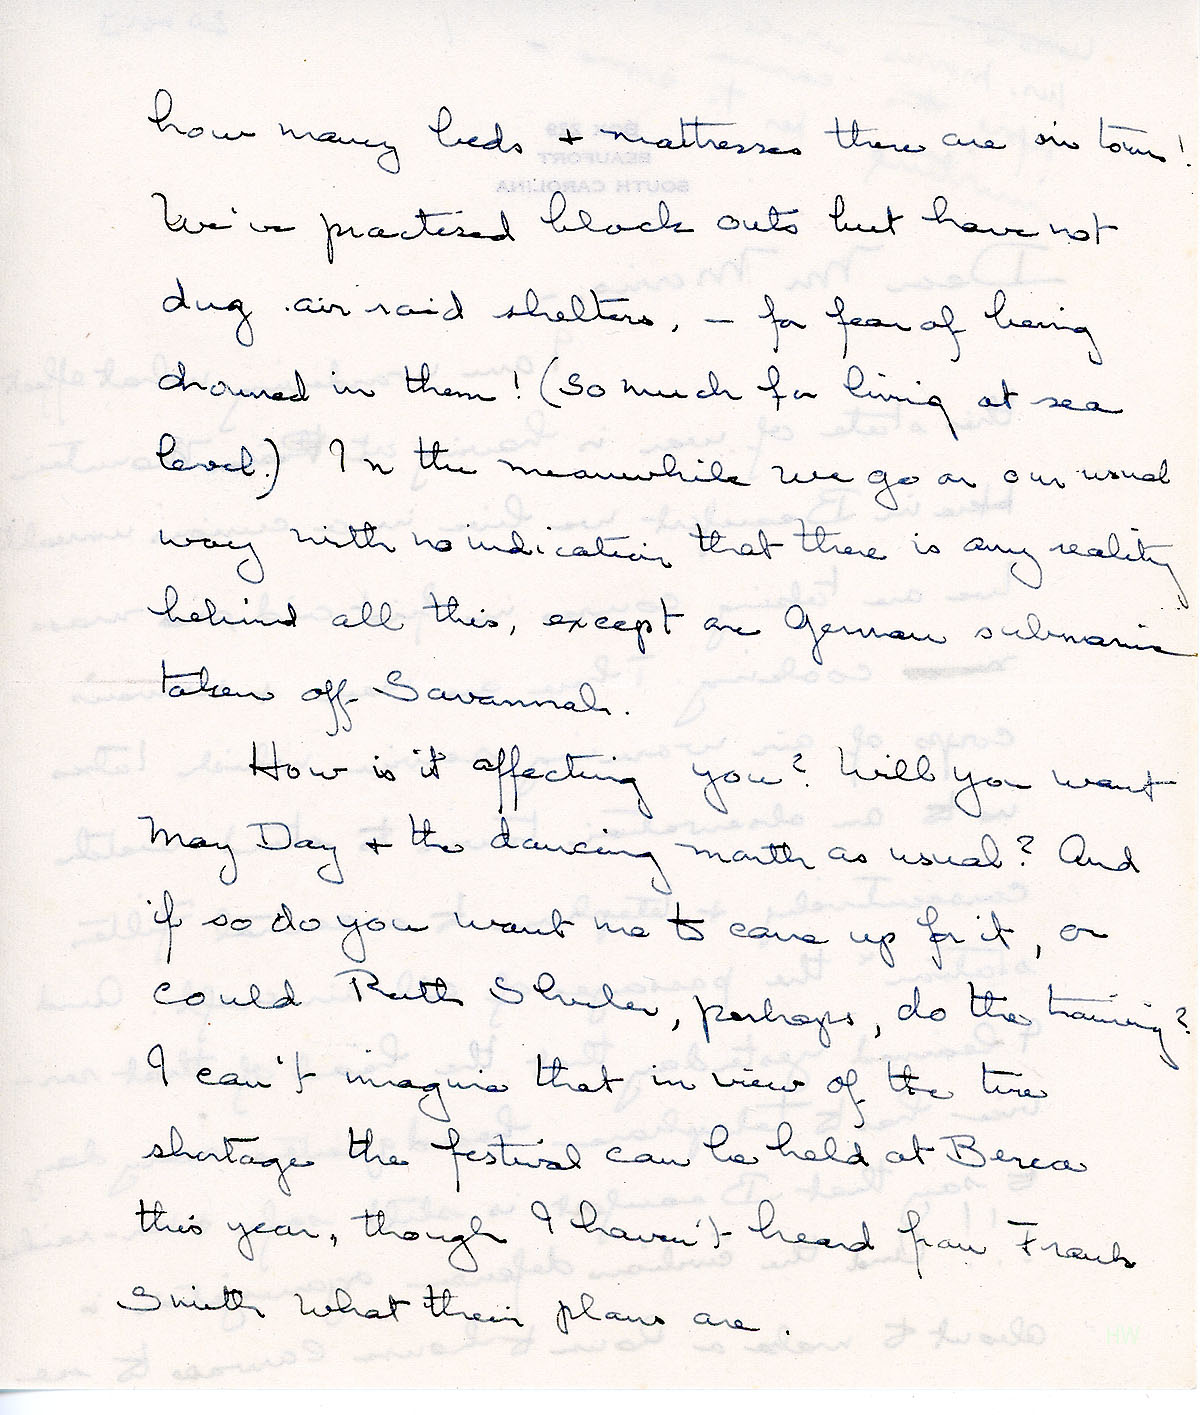 how many beds + mattresses there are in town!
We've practised black outs but have not
dug air raid shelters, – for fear of being
drowned in them! (So much for living at sea
level.) In the meanwhile we go on our usual
way with no indication that there is any reality
behind all this, except one German submarine
taken off Savannah.
How is it affecting you? Will you want
May Day + the dancing month as usual? And
if so do you want me to come up for it, or
could Ruth Shuler, perhaps, do the training?
I can't imagine that in view of the tire
shortage the festival can be held at Berea
this year, though I haven't heard from Frank
Smith what their plans are.
HW